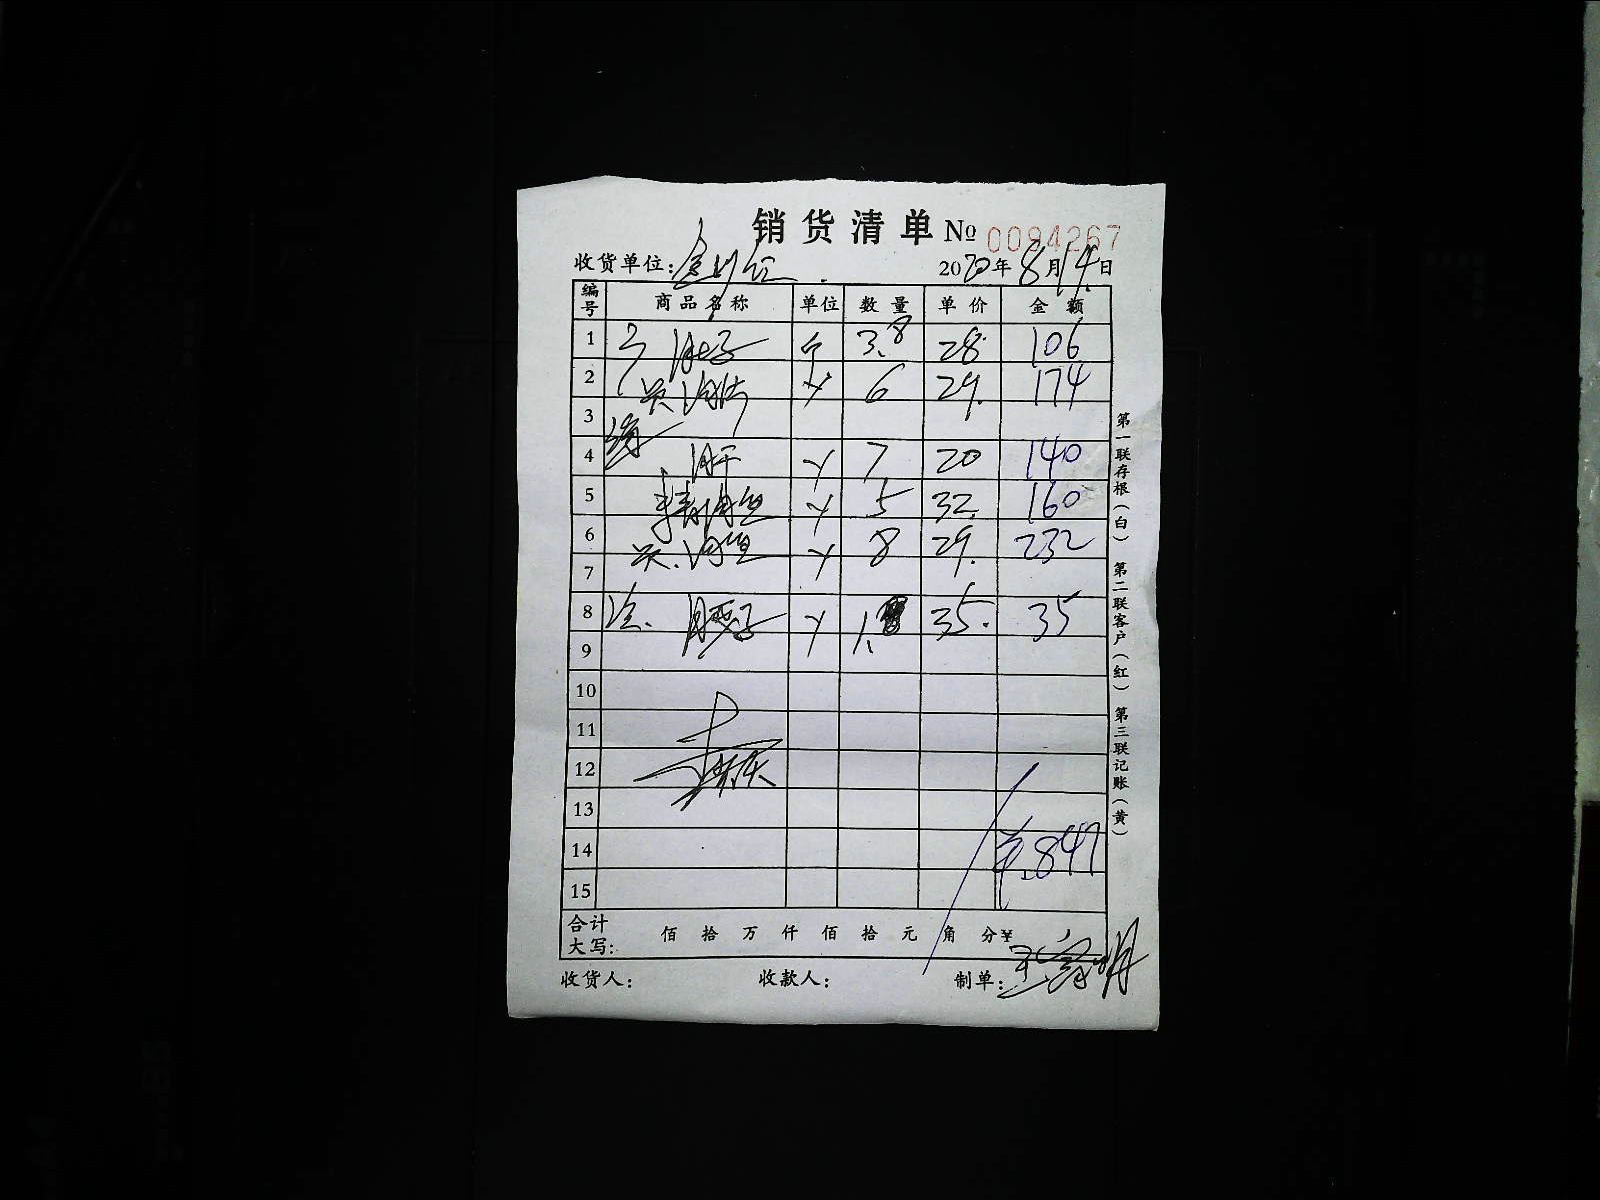 销货清单 No 0094267
收货单位: 2020年8月14日
编号 商品名称 单位 数量 单价 金额
1 肚子 个 3.8 28 106
2 6 29. 174
3
4 肝 7 20 140
5 5 32 160
6 8 29. 232
7
8 腰子 1. 35. 35
9
10
11
12
13
14 ¥.847
15
合计大写: 佰 拾 万 仟 佰 拾 元 角 分¥
收货人: 收款人: 制单:
第一联存根(白) 第二联客户(红) 第三联记账(黄)